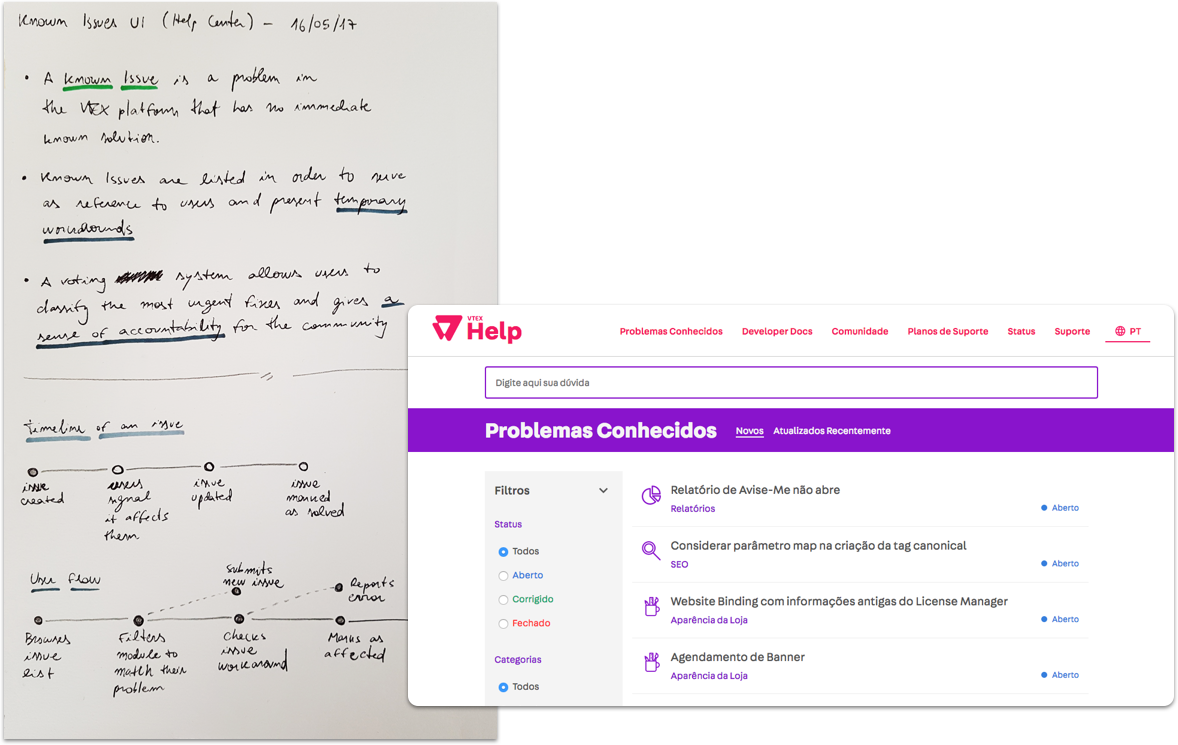 Known Issues UI (Help Center) - 16/05/17
• A Known Issue is a problem in
the VTEX platform that has no immediate
known solution.
• Known Issues are listed in order to serve
as reference to users and present temporary
workarounds
• A voting system allows users to
classify the most urgent fixes and gives a
sense of accountability for the community
Timeline of an issue
issue
created
users
signal
it affects
them
issue
updated
issue
marked
as solved
User flow
Submits
new issue
Reports
error
Browses
issue
list
Filters
module to
match their
problem
Checks
issue
workaround
Marks as
affected
VTEX
Help
Problemas Conhecidos Developer Docs Comunidade Planos de Suporte Status Suporte PT
Digite aqui sua dúvida
Problemas Conhecidos Novos Atualizados Recentemente
Filtros
Status
Todos
Aberto
Corrigido
Fechado
Categorias
Todos
Relatório de Avise-Me não abre
Relatórios Aberto
Considerar parâmetro map na criação da tag canonical
SEO Aberto
Website Binding com informações antigas do License Manager
Aparência da Loja Aberto
Agendamento de Banner
Aparência da Loja Aberto